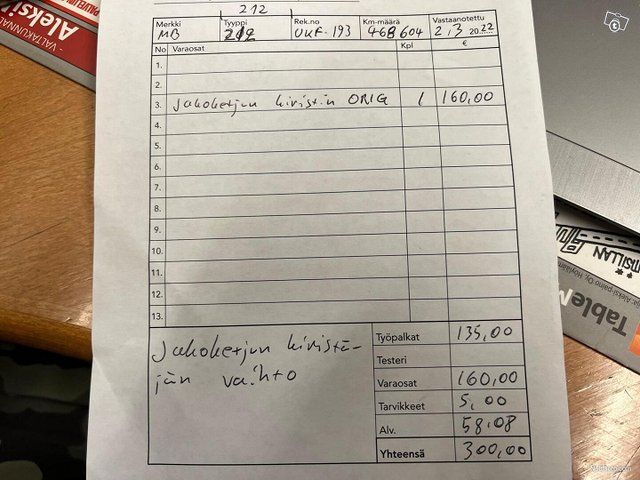 212
Merkki Tyyppi Rek.no Km-määrä Vastaanotettu
MB 212 UKF-193 468604 2,3 2022
No Varaosat Kpl €
1.
2.
3. Jakoketjun kiristin ORIG 1 160,00
4.
5.
6.
7.
8.
9.
10.
11.
12.
13.
Jakoketjun kiristä-
jän vaihto
Työpalkat 135,00
Testeri
Varaosat 160,00
Tarvikkeet 5,00
Alv. 58,08
Yhteensä 300,00
Aleksi
VALTAKUNNAL
MSILLAN
TableM